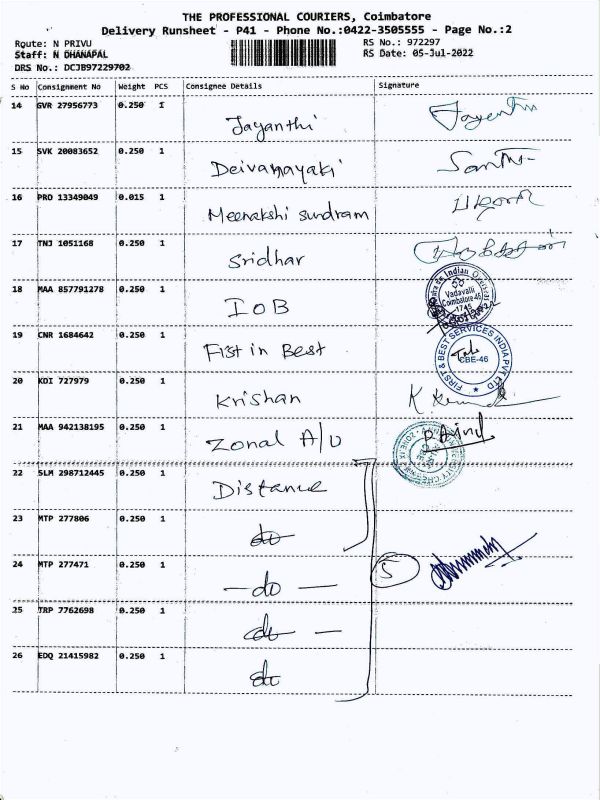 THE PROFESSIONAL COURIERS, Coimbatore
Delivery Runsheet - P41 - Phone No.:0422-3505555 - Page No.:2
Route: N PRIVU
RS No.: 972297
Staff: N DHANAPAL
RS Date: 05-Jul-2022
DRS No.: DCJB97229702
S No Consignment No Weight PCS Consignee Details Signature
14 GVR 27956773 0.250 1 Jayanthi
15 SVK 20083652 0.250 1 Deivanayaki
16 PRO 13349049 0.015 1 Meenakshi sundram
17 TNJ 1051168 0.250 1 Sridhar
18 MAA 857791278 0.250 1 IOB
Vadavalli
Coimbatore-46
1745
19 CNR 1684642 0.250 1 Fist in Best
FIRST & BEST SERVICES INDIA PVT LTD
CBE-46
20 KDI 727979 0.250 1 Krishan
21 MAA 942138195 0.250 1 Zonal A/U
22 SLM 298712445 0.250 1 Distance
23 MTP 277806 0.250 1 do
24 MTP 277471 0.250 1 - do - 5
25 TRP 7762698 0.250 1 do -
26 EDQ 21415982 0.250 1 do